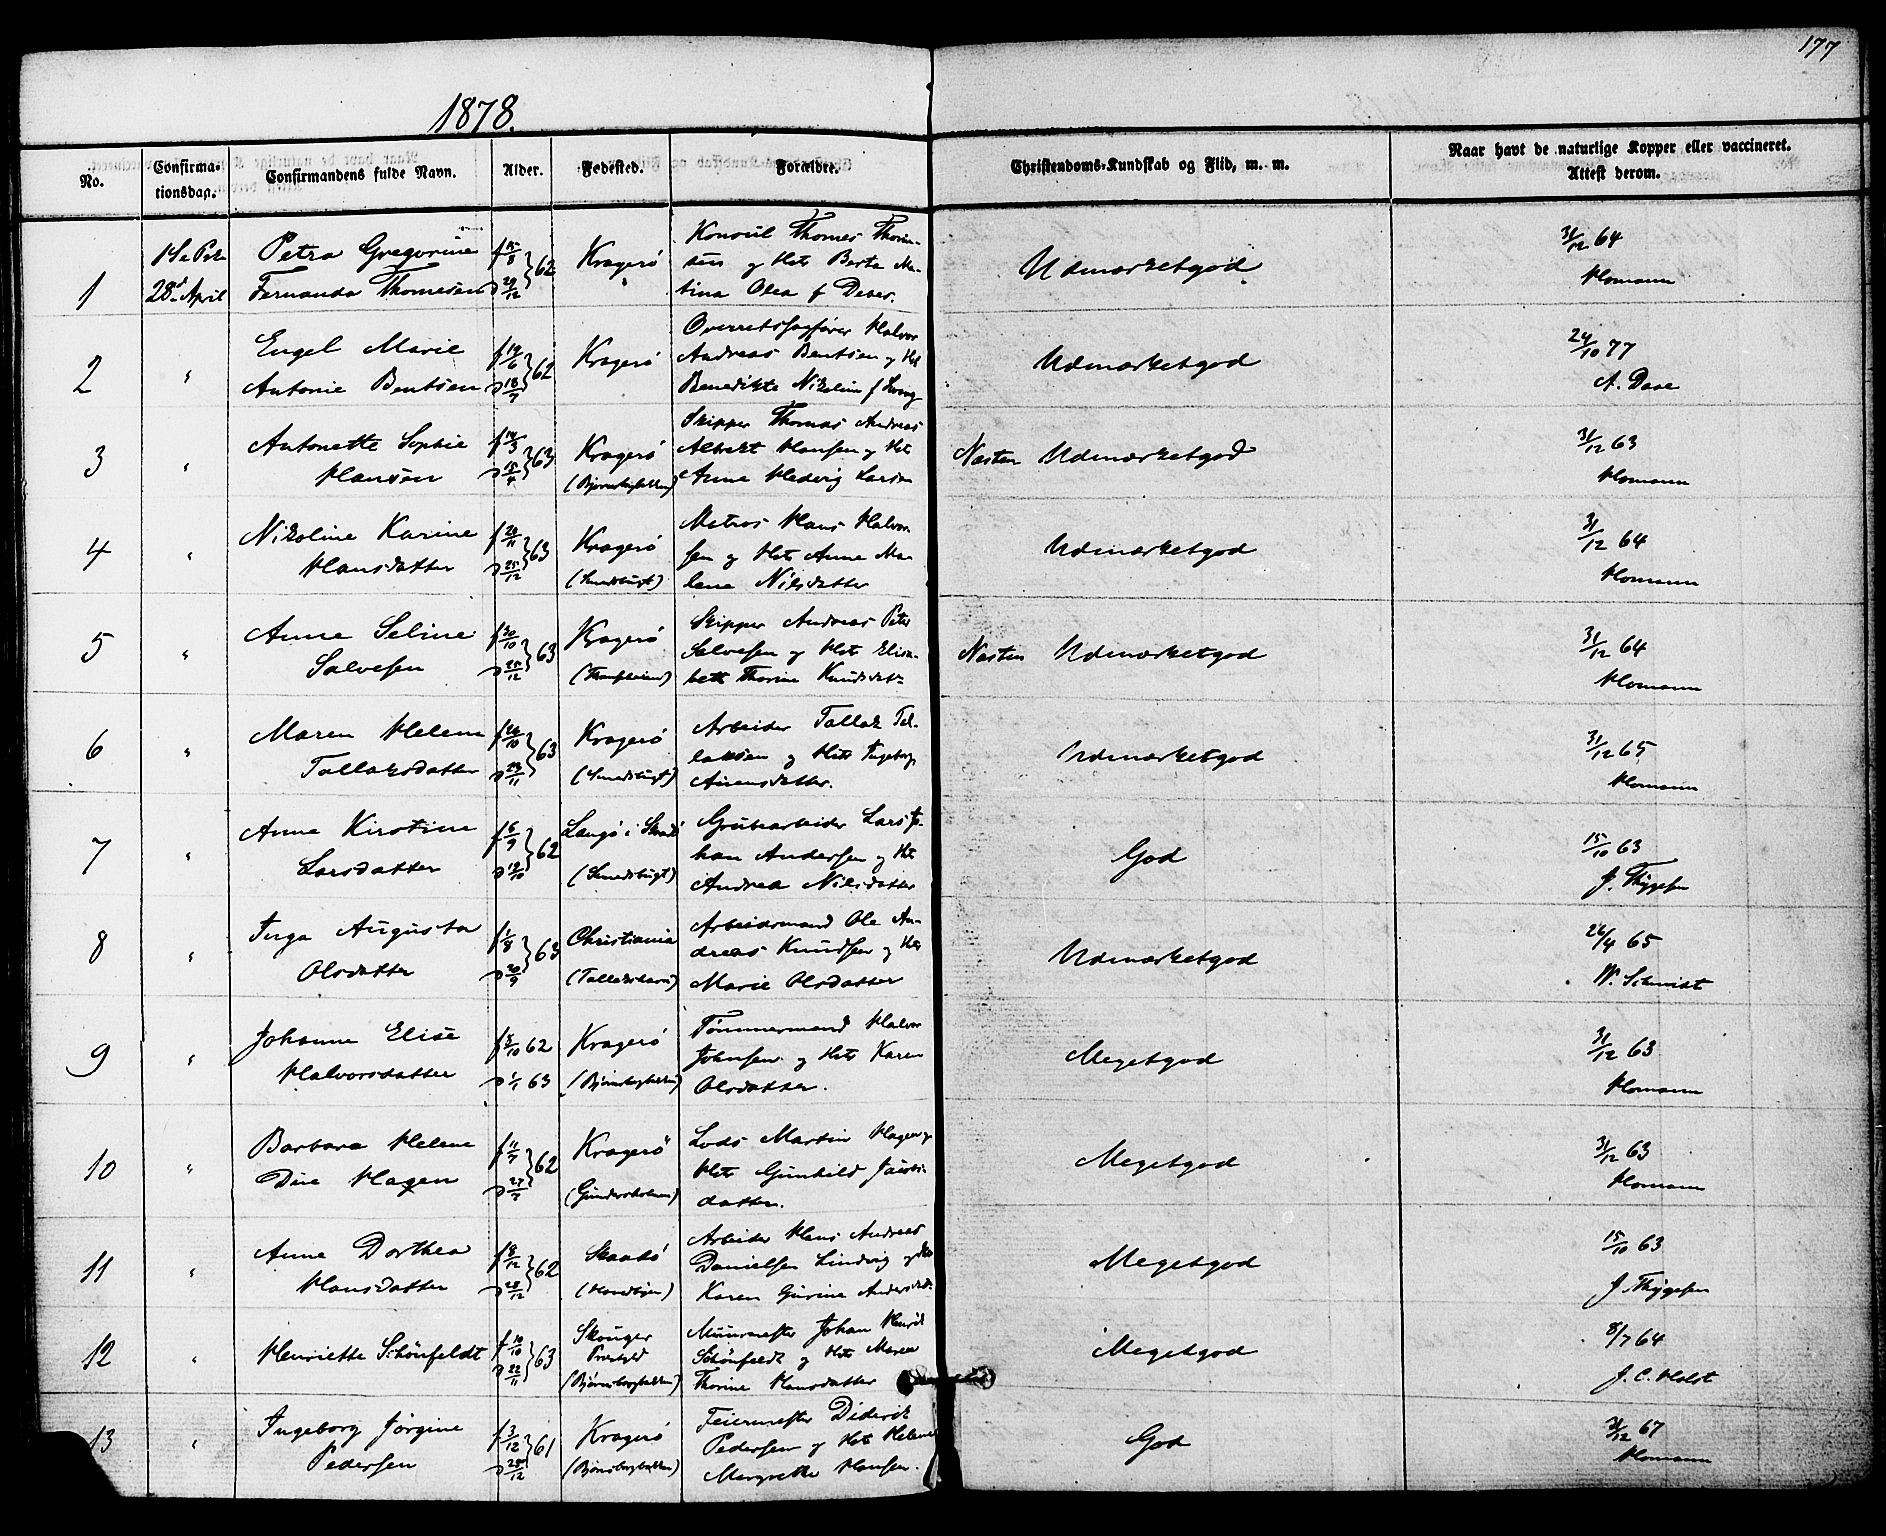 177
1878.
No.
Confirma-
tionsdag.
Confirmandens fulde Navn.
Alder.
Fødested.
Forældre.
Christendoms-Kundskab og Flid, m. m.
Naar havt de naturlige Kopper eller vaccineret.
Attest derom.
1
28d April
Petra Gregorine
Fernanda Thomesen
f 15/8 62
d 29/12
Kragerø
Konsul Thomes Thom-
sen og Hst Berte Ma-
tina Olea f
Udmærketgod
31/12 64
Homann
2
"
Engel Marie
Antonie Bentsen
f 19/6 62
d 18/7
Kragerø
Overretssagfører Halvor
Andreas Bentsen og Hst
Benedikte Nikoline f
Udmærketgod
24/10 77
3
"
Antonette Sophie
Hansen
f 14/3 63
d 15/4
Kragerø
(Bjørnsbergbakken)
Skipper Thomas Andreas
Albrekt Hansen og Hst
Anne Hedvig Larsen
Næsten Udmærketgod
31/12 63
Homann
4
"
Nikoline Karine
Hansdatter
f 20/11 63
d 25/12
Kragerø
(Smedsbugt)
Matros Hans Halvor-
sen og Hst Anne Ma-
lene Nilsdatter
Udmærketgod
31/12 64
Homann
5
"
Anne Seline
Salvesen
f 30/10 63
d 25/12
Kragerø
Skipper Andreas Peter
Salvesen og Hst Elisa-
beth Thorine Knudsdatr
Næsten Udmærketgod
31/12 64
Homann
6
"
Maren Helene
Tallaksdatter
f 26/10 63
d 23/11
Kragerø
(Smedsbugt)
Arbeider Tallak Tal-
laksen og Hst Ingeborg
Udmærketgod
31/12 65
Homann
7
"
Anne Kirstine
Larsdatter
f 6/9 62
d 19/10
Langø i Skaatø
(Smedsbugt)
Grubearbeider Lars Jo-
han Andersen og Hst
Andrea Nilsdatter
God
15/10 63
J. Thygesen
8
"
Inga Augusta
Olsdatter
f 1/8 63
d 20/9
Christiania
Arbeidsmand Ole An-
dreas Knudsen og Hst
Marie Olsdatter
Udmærketgod
26/4 65
W. Schmidt
9
"
Johanne Elise
Halvorsdatter
f 5/10 62
d 1/1 63
Kragerø
(Bjørnsbergbakken)
Tømmermand Halvor
Johnsen og Hst Karen
Olsdatter.
Megetgod
31/12 63
Homann
10
"
Barbara Helene
Dine Hagen
f 11/7 62
d 27/7
Kragerø
(Gundersholmen)
Lods Martin Hagen og
Hst Gunhild Jacobs-
datter.
Megetgod
31/12 63
Homann
11
"
Anne Dorthea
Hansdatter
f 8/12 62
d 28/12
Skaatø
Arbeider Hans Andreas
Danielsen Lindvig og Hst
Karen Gurine Andersdatr
Megetgod
15/10 63
J. Thygesen
12
"
Henriette Schönfeldt
f 10/10 63
d 22/11
Skouger
Præstgld
(Bjørnsbergbakken)
Muurmester Johan Henrik
Schönfeldt og Hst Maren
Thorine Hansdatter
Megetgod
8/7 64
J. C. Holst
13
"
Ingeborg Jørgine
Pedersen
f 3/12 61
d 28/12
Kragerø
(Bjørnsbergbakken)
Feiermester Diderik
Pedersen og Hst Helene
Margrethe Hansen.
God
31/12 67
Homann